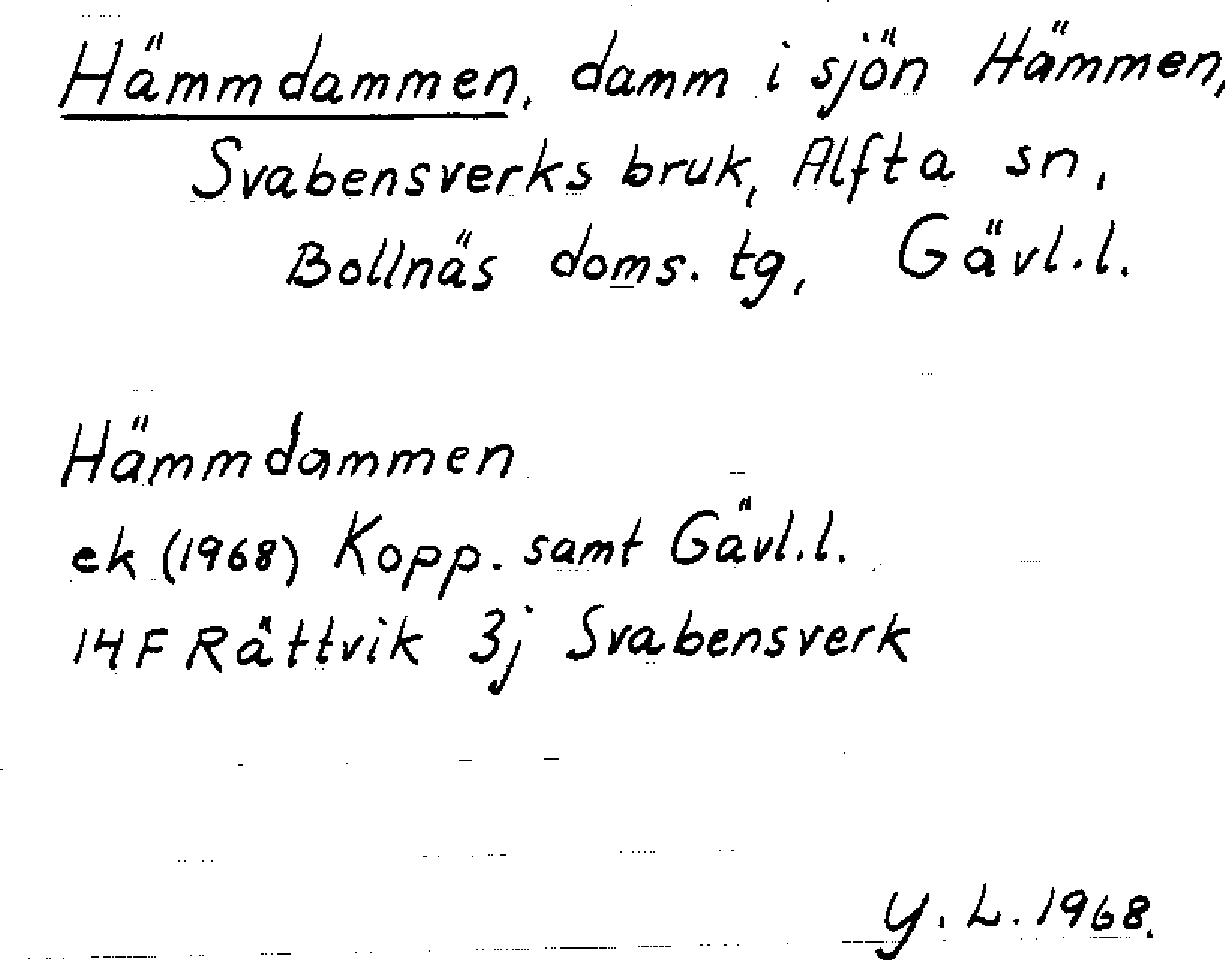 Hämmdammen, damm i sjön Hämmen,
Svabensverks bruk, Alfta sn,
Bollnäs doms. tg, Gävl.l.
Hämmdammen
ek (1968) Kopp. samt Gävl.l.
14F Rättvik 3j Svabensverk
Y. L. 1968.